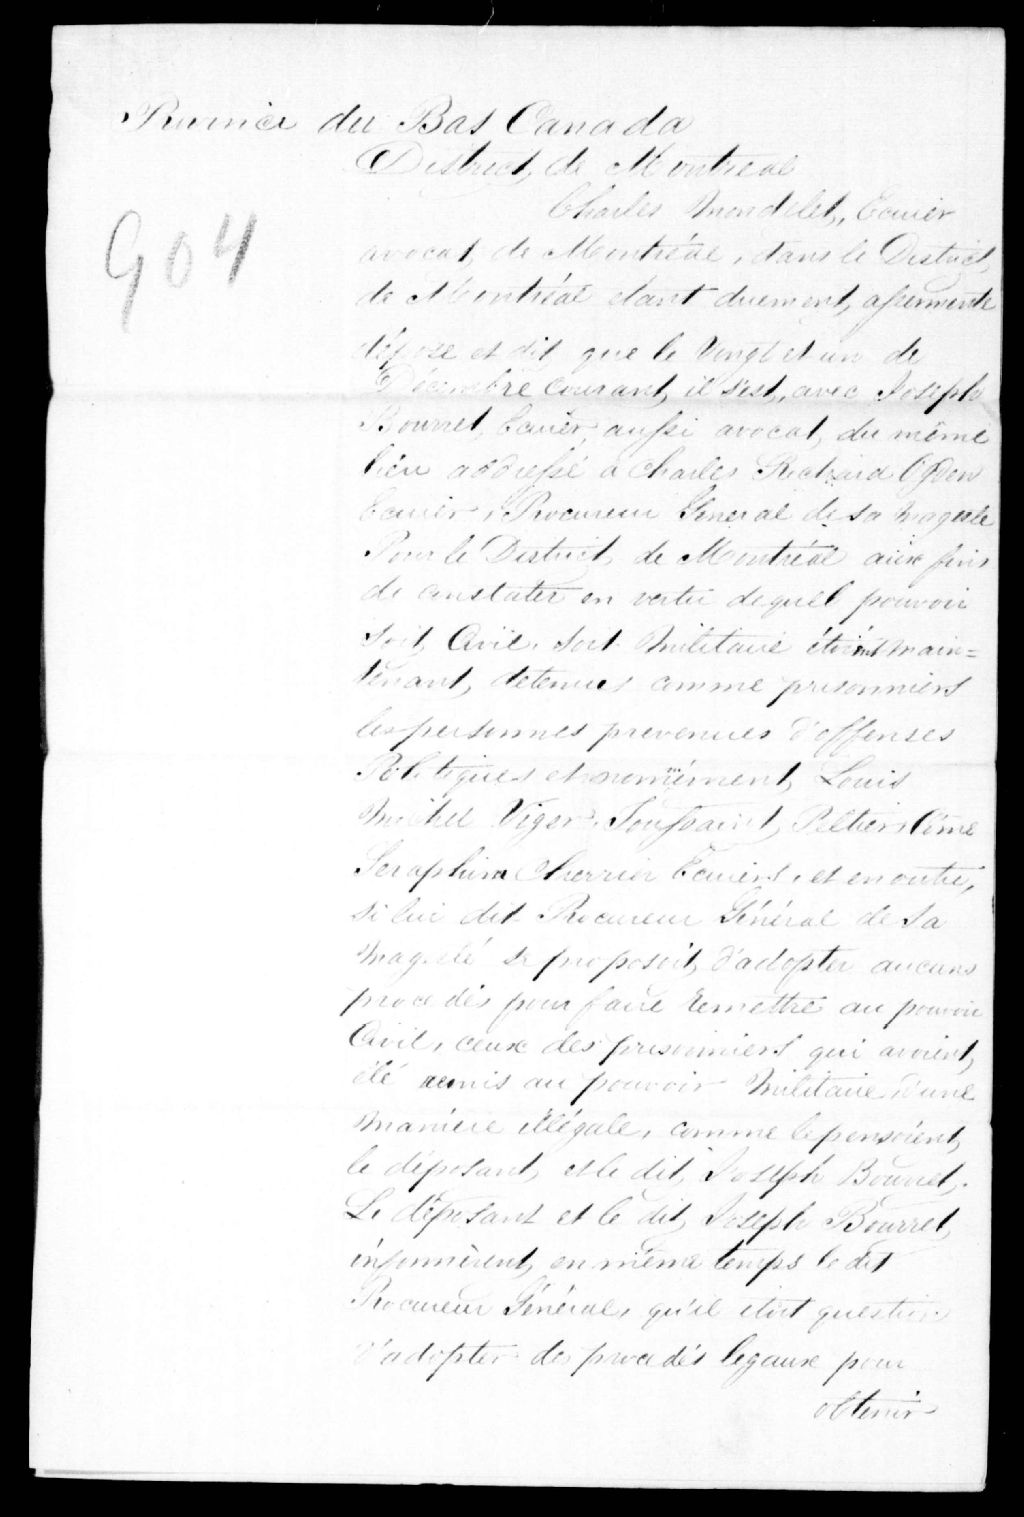 Province du Bas Canada
District de Montreal
904
Charles Mondelet, Ecuier
avocat, de Montréal, dans le District
de Montréal etant duement assermenté
dépose et dit que le Vingt et un de
Décembre courant, il s'est, avec Joseph
Bourret, Ecuier, aussi avocat, du même
lieu addressé à Charles Richard Ogden
Ecuier, Procureur Général de Sa Magesté
Pour le District de Montréal aux fins
de constater en vertu de quel pouvoir
soit Civil, soit Militaire étoient main=
tenant, detenues comme prisonniers
les personnes prevenues d'offenses
Politiques et nomément, Louis
Michel Viger, Toussaint Peltier, Côme
Seraphim Cherrier Ecuiers, et en outre,
si lui dit Procureur Général de Sa
Magesté se proposoit, d'adopter aucuns
procedés pour faire remettre au pouvoir
Civil, ceux des prisonniers qui avoient,
été remis au pouvoir Militaire, d'une
manière illégale, comme le pensoient,
le déposant, et le dit, Joseph Bourret.
Le déposant et le dit, Joseph Bourret,
informèrent, en même temps le dit
Procureur Général, qu'il étoit question
d'adopter des procedés legaux pour
obtenir